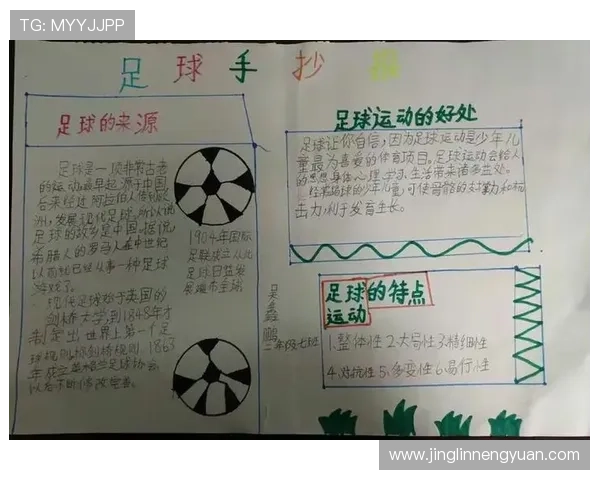 TG: MYYJJPP
足球手抄报
足球的来源
足球是一项非常古老
的运动,最早起源于中国,
后来经过阿拉伯人传到欧
洲,发展现代足球。所以说
足球的故乡是中国。据说,
希腊人的罗马人在中世纪
以前就已经从事一种足球
游戏了。
现代足球始于英国的
剑桥大学,到1848年才
制定出世界上第一个足
球规则
1863
年成立英格兰足球协会
以后不断修改完善。
1904年国际
足联成立从此
足球日益发
展遍布全球
吴鑫鹏
二年级七班
足球运动的好处
足球让你自信,因为足球运动是少年儿
童最为喜爱的体育项目。足球运动会给人
的思想身体心理、学习、生活带来诸多益处。
经常踢球的少年儿童,可使骨骼的
击力,利于发育生长。
足球的特点
运动
1.整体性 2.大局性 3.精细性
4.对抗性 5.多变性 6.易行性
www.jinglinnengyuan.com